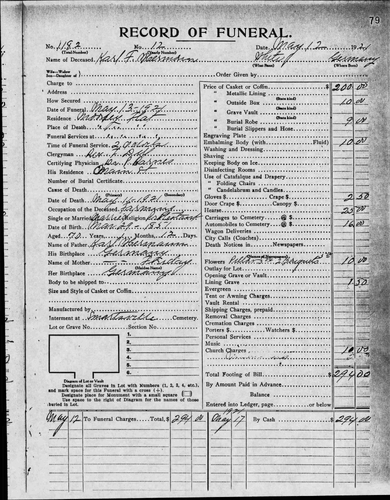 79
RECORD OF FUNERAL.
No. 192 No. 12 Date May 12 1921
(Total Number) (Yearly Number)
Name of Deceased Karl F. White Germany
(What State) (Where Born)
Wife—Widow
Son—Daughter of Order Given by
Charge to
Address
How Secured
Date of Funeral May 13-1921
Residence
Place of Death
Funeral Services at
Time of Funeral Service 2 o'clock
Clergyman Rev.
Certifying Physician Dr. Barnes
His Residence
Number of Burial Certificate
Cause of Death
Date of Death May 1921
Occupation of the Deceased Farming
Single or Married Married Religion Protestant
Date of Birth Mar 29-1851
Aged 70 Years, Months, 12 Days
Name of Father Karl
His Birthplace Germany
Name of Mother
(Maiden Name)
Her Birthplace Germany
Body to be shipped to
Size and Style of Casket or Coffin
Manufactured by
Interment at Smartsville Cemetery.
Lot or Grave No. Section No.
Diagram of Lot or Vault
Designate all Graves in Lot with Numbers (1, 2, 3, 4, etc.) and mark space for this Funeral with a cross (+).
Designate place for Monument with a small square □
Use space to the right of Diagram for the names of those buried in Lot.
Price of Casket or Coffin $ 200.00
" Metallic Lining
(State kind)
" Outside Box 10 00
(State kind)
" Grave Vault
(State kind)
" Burial Robe 9 00
(State kind)
" Burial Slippers and Hose
Engraving Plate
Embalming Body (with Fluid) 10 00
Washing and Dressing
Shaving
Keeping Body on Ice
Disinfecting Rooms
Use of Catafalque and Drapery
" Folding Chairs
" Candelabrum and Candles
Gloves $ Chairs $ 2 50
Door Crape $ Canopy $
Hearse 25 00
Carriages to Cemetery @ $
Automobiles to Cemetery @ $ 16 00
Wagon Deliveries @ $
City Calls (Coaches) @ $
Death Notices in Newspapers
Flowers 10 00
Outlay for Lot
Opening Grave or Vault
Lining Grave 1 50
Evergreen
Tent or Awning Charges
Vault Rental
Shipping Charges, prepaid
Removal Charges
Cremation Charges
Porters $ Watchers $
Personal Services
Music
Church Charges 10 00
Total Footing of Bill $ 294 00
By Amount Paid in Advance
Balance
Entered into Ledger, page or below
May 12 To Funeral Charges, Total $ 294 00 May 17 By Cash $ 294 00